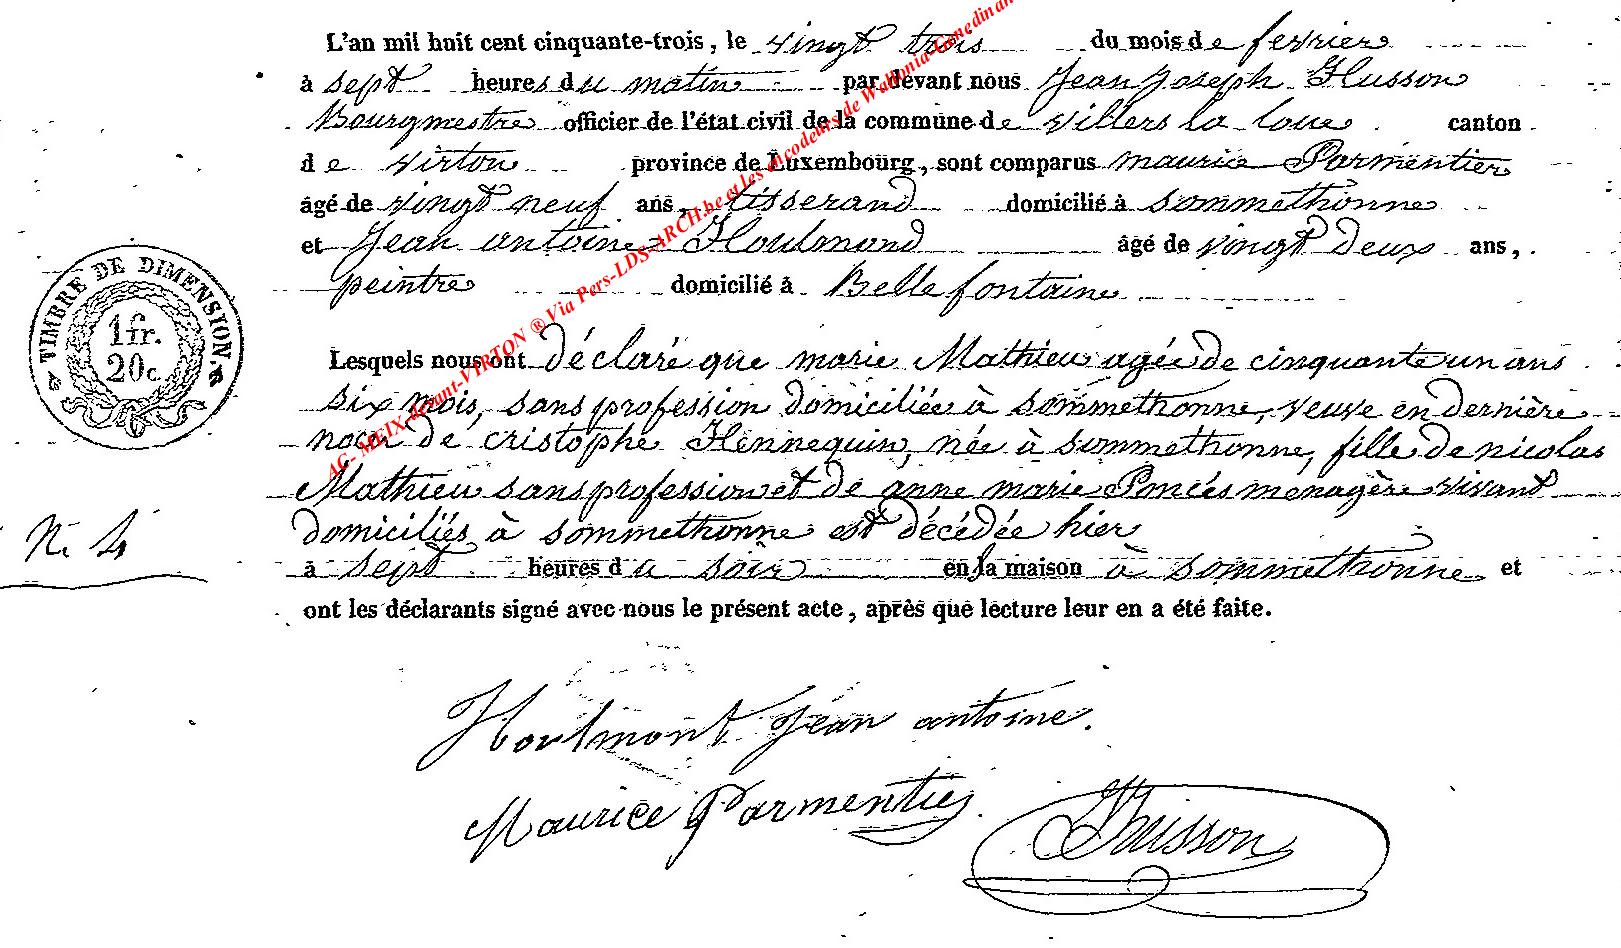 L'an mil huit cent cinquante-trois, le vingt trois du mois de fevrier
à sept heures du matin par devant nous Jean Joseph Husson
Bourgmestre officier de l'état civil de la commune de villers la loue canton
de virton province de Luxembourg, sont comparus maurice Parmentier
âgé de vingt neuf ans, tisserand domicilié à sommethonne
et Jean antoine Houlmond âgé de vingt deux ans,
peintre domicilié à Bellefontaine
TIMBRE DE DIMENSION
1 fr.
20 c.
Lesquels nous ont déclaré que marie Mathieu agée de cinquante un ans
six mois, sans profession domiciliée à sommethonne, veuve en dernière
noce de cristophe Hennequin, née à sommethonne, fille de nicolas
Mathieu sans profession et de anne marie Poncés menagère vivant
domiciliés à sommethonne est décédée hier
N. 4
à sept heures du soir en sa maison à sommethonne et
ont les déclarants signé avec nous le présent acte, après que lecture leur en a été faite.
Houlmont Jean antoine.
Maurice Parmentier
Husson
AG- MEIX-devant-VIRTON ® Via Pers-LDS-ARCH.be et les encodeurs de Wallonia-Genedinan